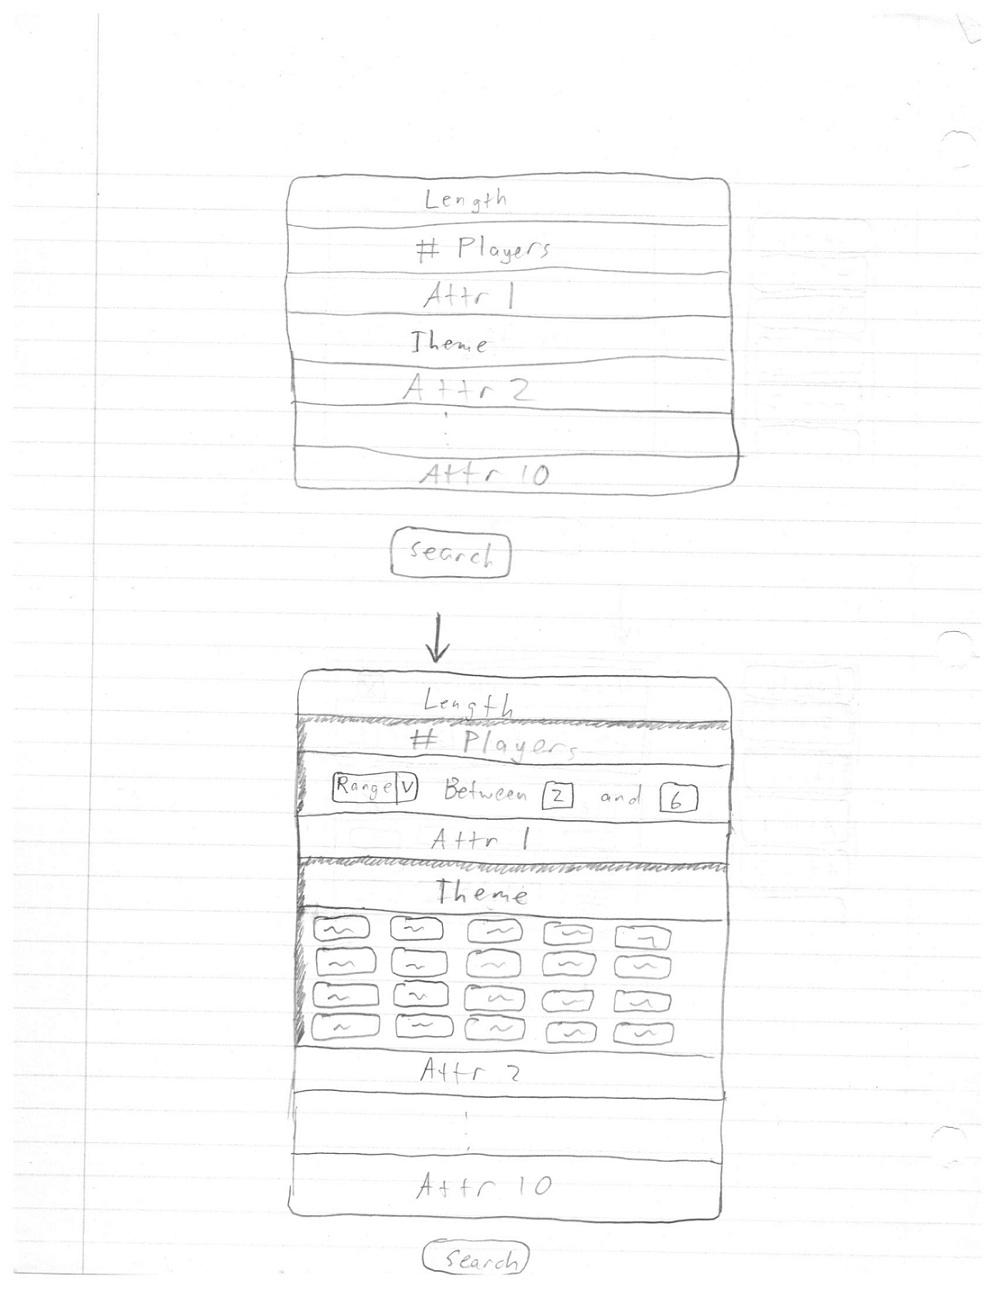 Length
# Players
Attr 1
Theme
Attr 2
Attr 10
search
Length
# Players
Range V Between 2 and 6
Attr 1
Theme
Attr 2
Attr 10
search